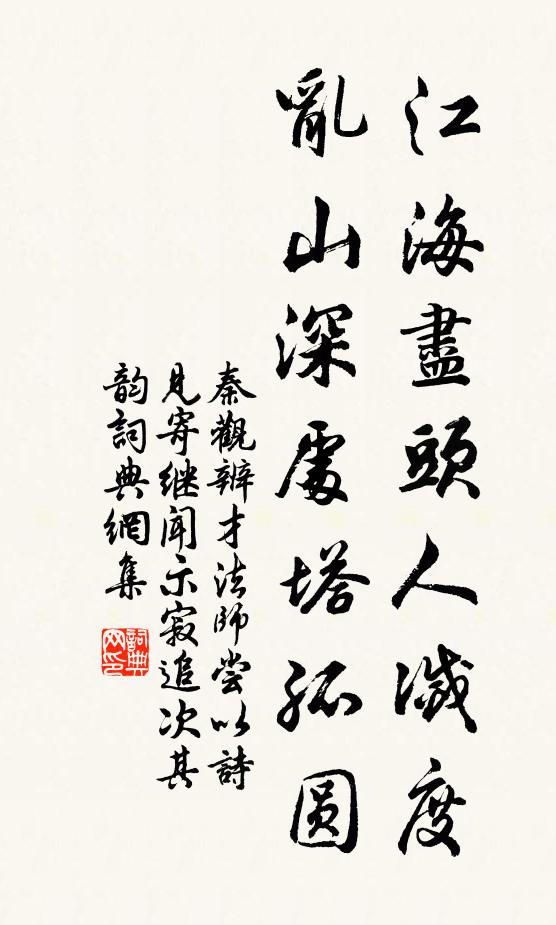 江海盡頭人滅度
亂山深處塔孤圓
秦觀辨才法師嘗以詩
見寄继聞示寂追次其
韵詞典網集
詞典網印